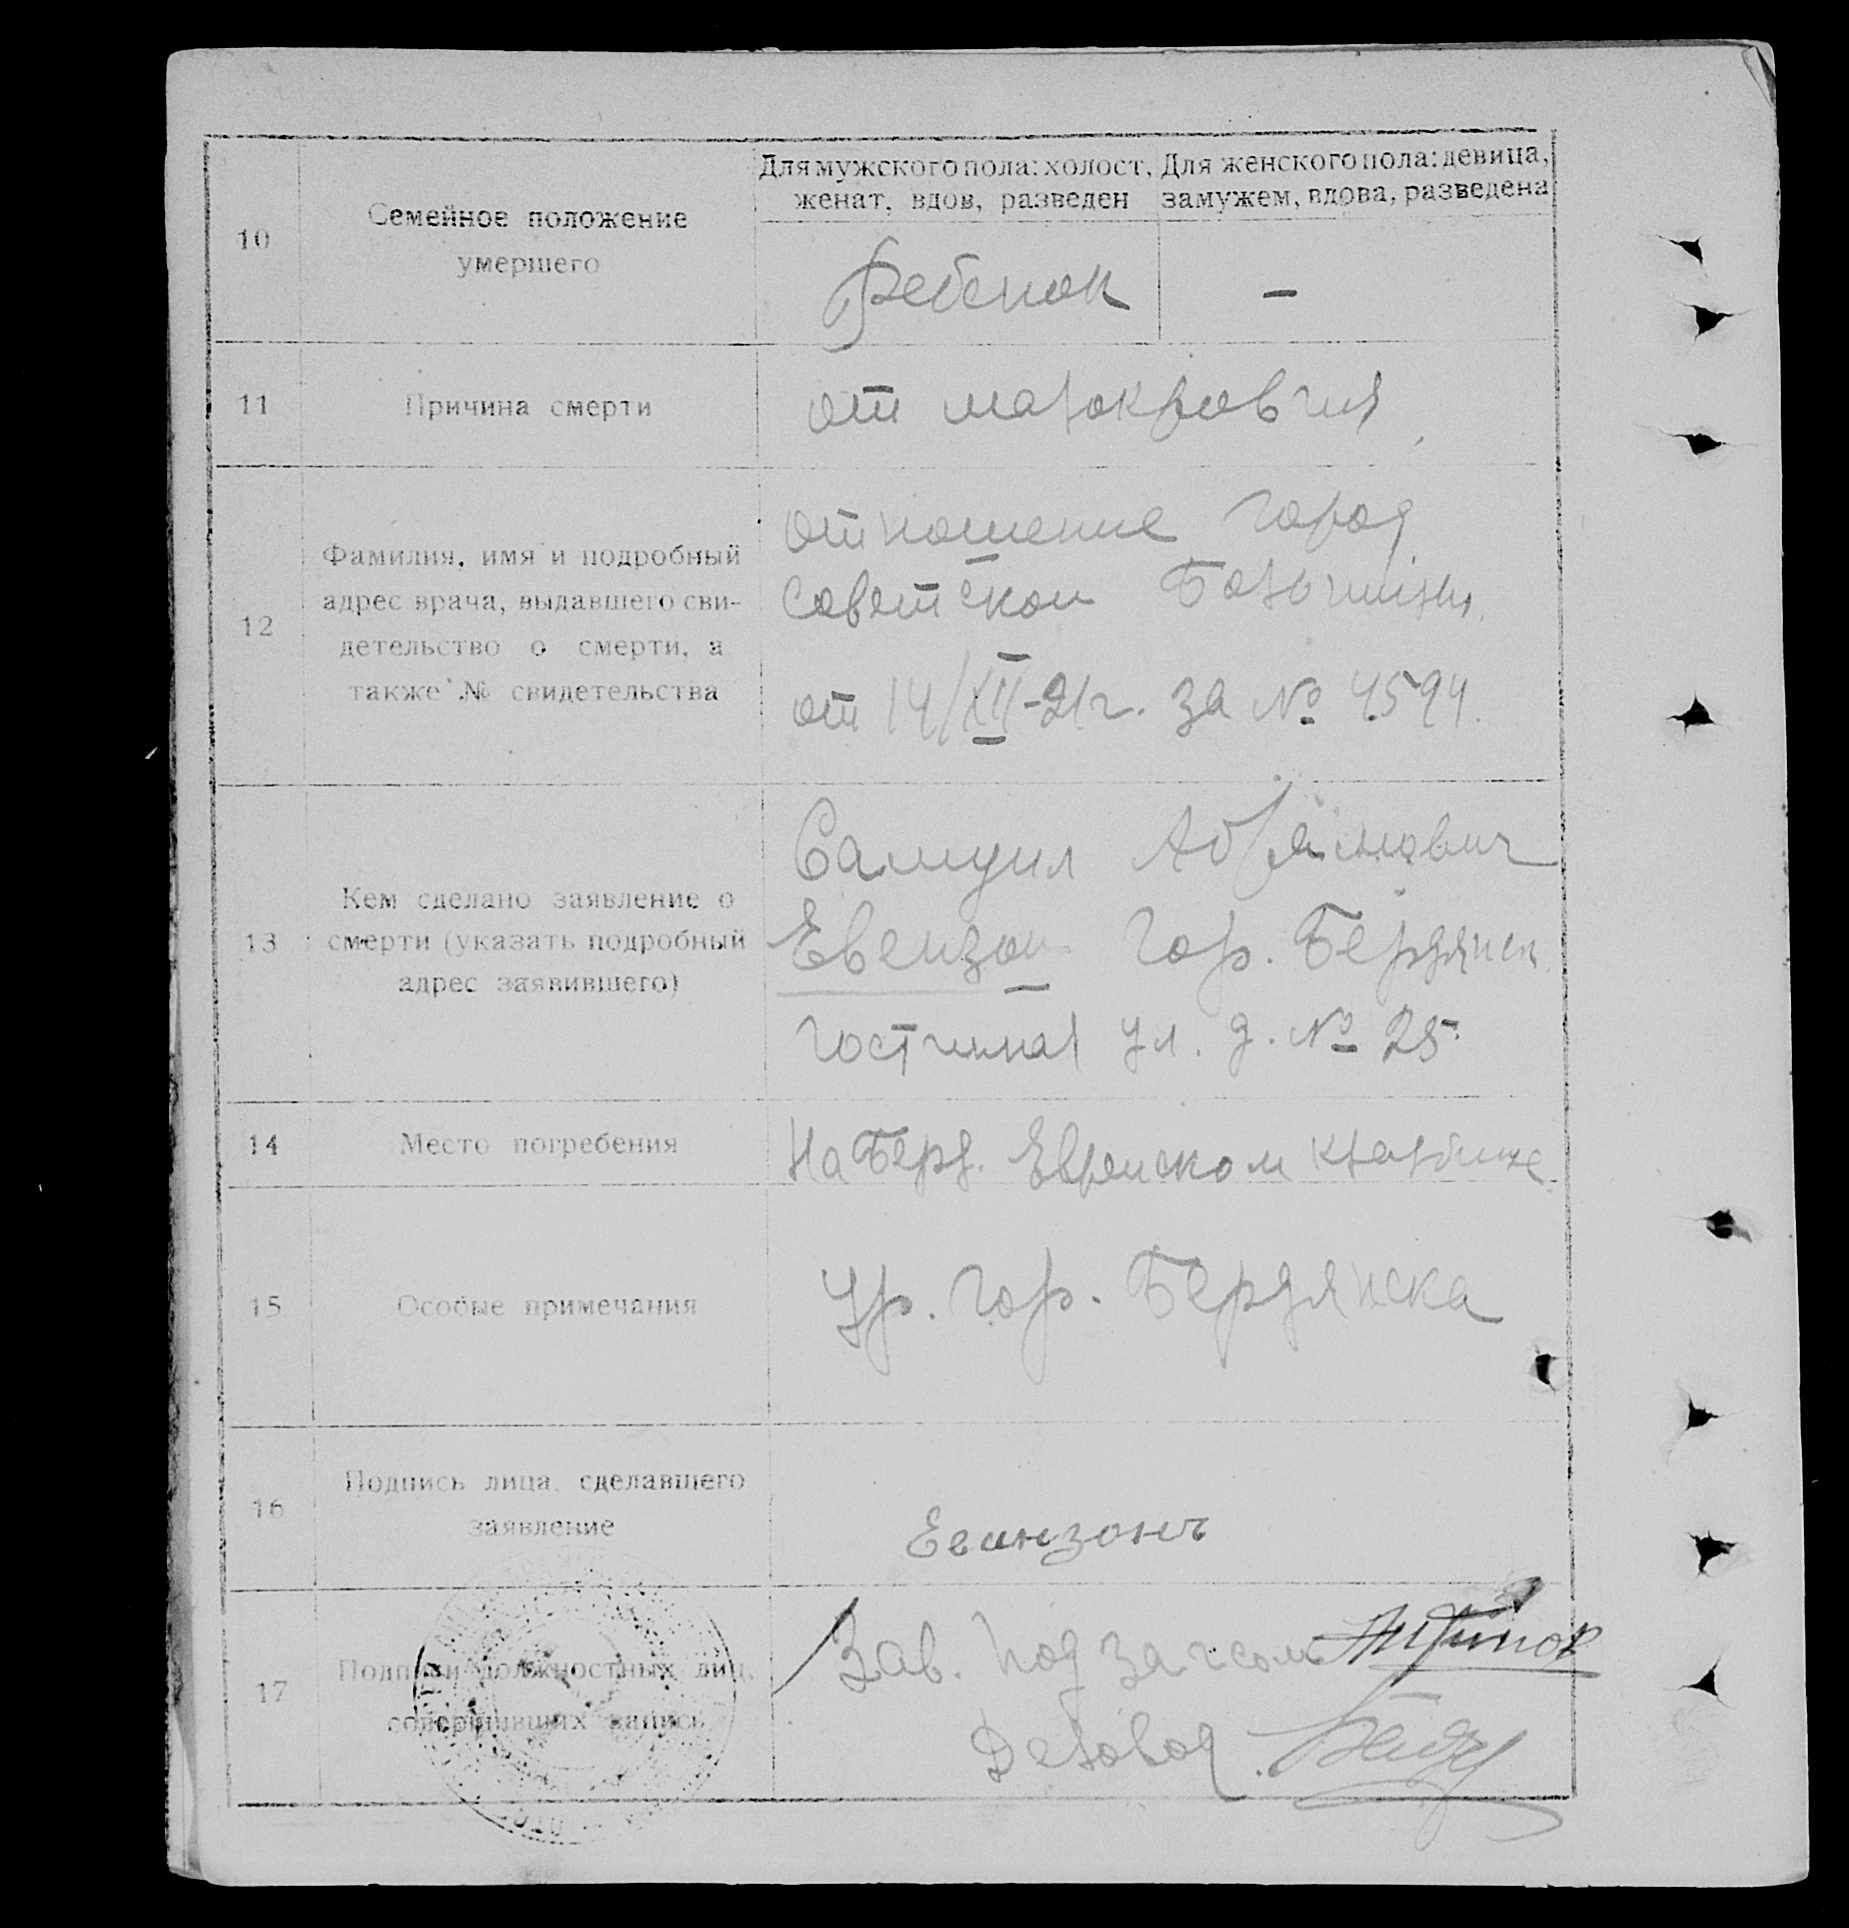 Для мужского пола: холост, женат, вдов, разведен
Для женского пола: девица, замужем, вдова, разведена
10
Семейное положение
умершего
Ребенок
-
11
Причина смерти
от малокровия
12
Фамилия, имя и подробный
адрес врача, выдавшего сви-
детельство о смерти, а
также № свидетельства
отношение город
советской Больницы
от 14/XII-21г. за № 4594.
13
Кем сделано заявление о
смерти (указать подробный
адрес заявившего)
Самуил Абрамович
Евензон гор. Бердянск
Гостинная ул. д. № 25.
14
Место погребения
На Берд. Еврейском кладбище
15
Особые примечания
Ур. гор. Бердянска
16
Подпись лица, сделавшего
заявление
17
Подписи должностных лиц,
совершивших запись
Зав. Подзагсом
Деловод.